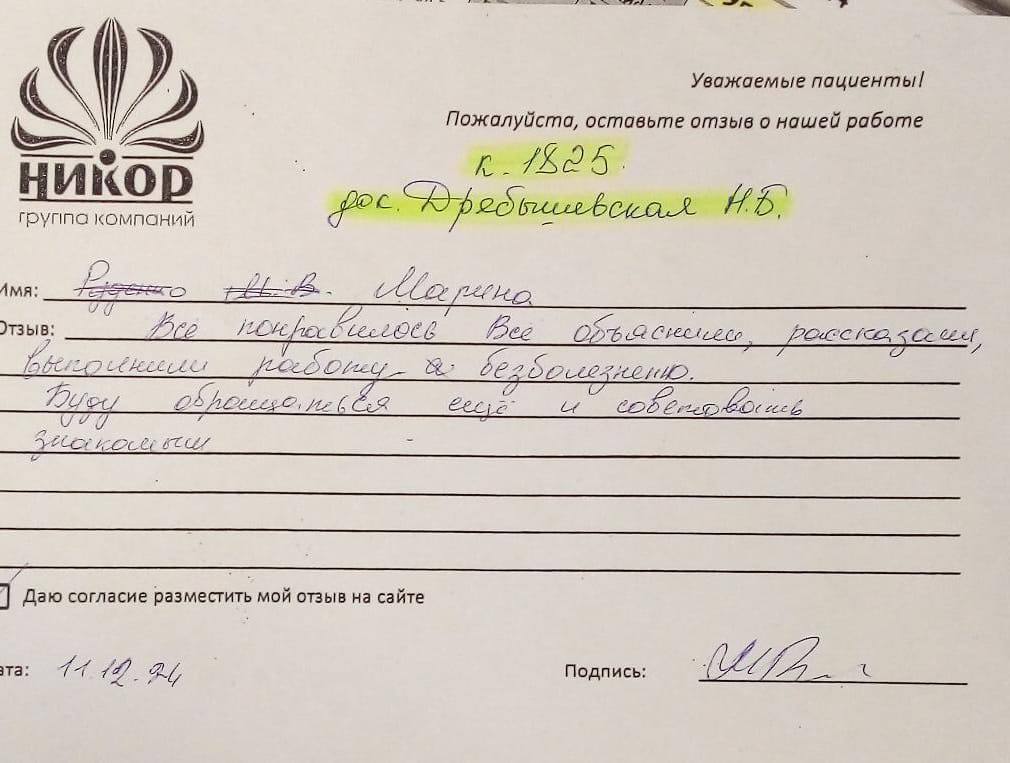 НИКОР
группа компаний
Уважаемые пациенты!
Пожалуйста, оставьте отзыв о нашей работе
к. 1825
док. Дребышевская Н.Б.
Имя: Руденко М.В. Марина
Отзыв: Всё понравилось Всё объяснили, рассказали,
выполнили работу безболезненно.
Буду обращаться ещё и советовать
знакомым
Даю согласие разместить мой отзыв на сайте
ата: 11.12.24
Подпись: